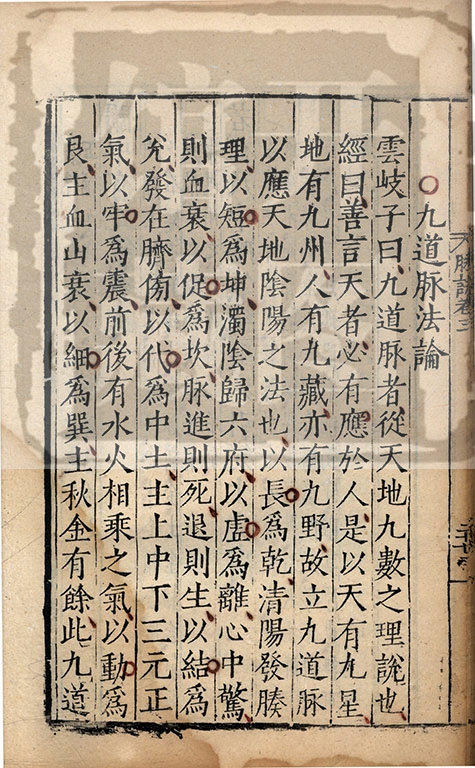 九道脉法論
雲岐子曰九道脉者從天地九數之理說也
經曰善言天者必有應於人是以天有九星
地有九州人有九藏亦有九野故立九道脉
以應天地陰陽之法也以長爲乾清陽發腠
理以短爲坤濁陰歸六府以虛爲離心中驚
則血衰以促爲坎脉進則死退則生以結爲
兌發在臍傍以代爲中土主上中下三元正
氣以牢爲震前後有水火相乘之氣以動爲
艮主血山衰以細爲巽主秋金有餘此九道